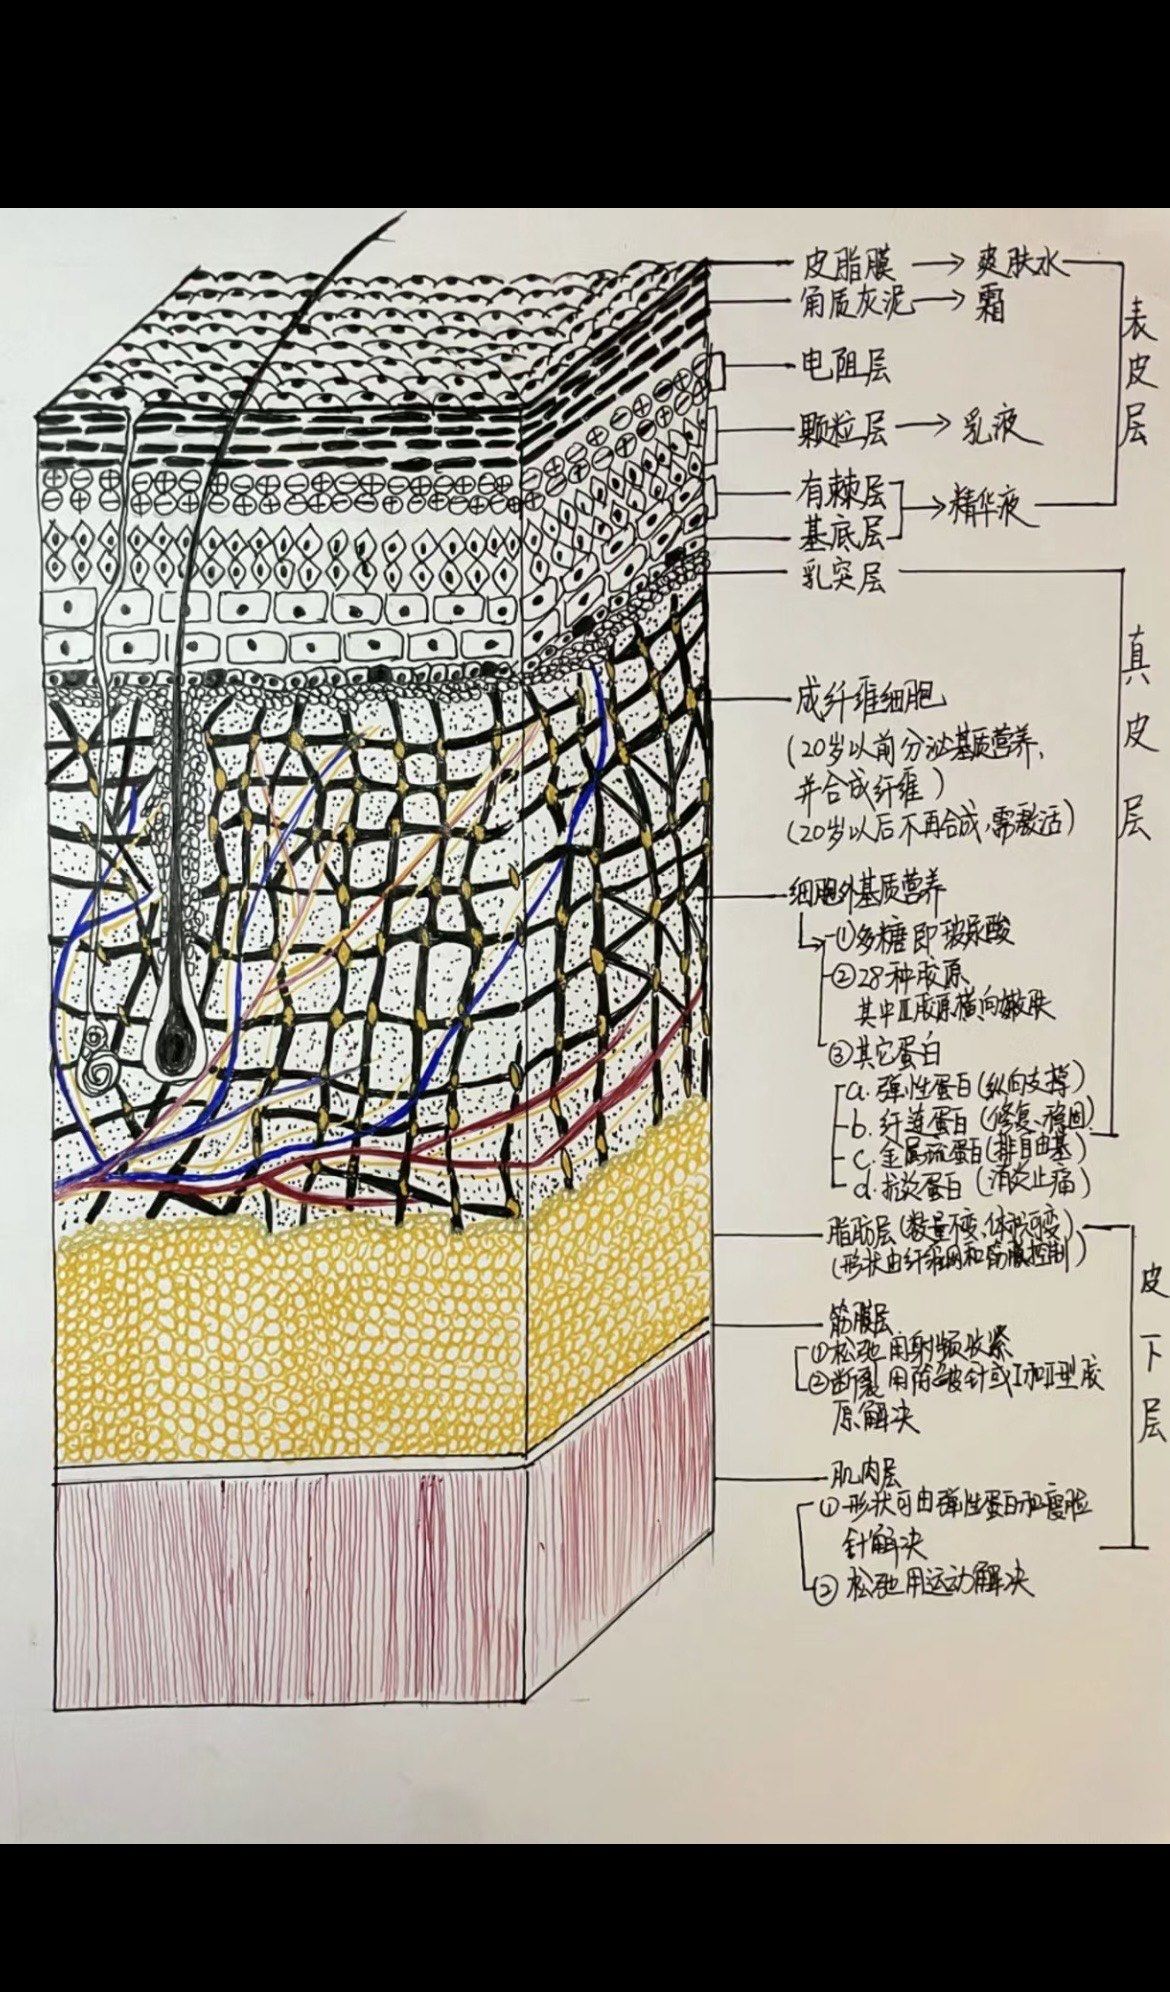 皮脂膜 → 爽肤水
角质灰泥 → 霜
电阻层
颗粒层 → 乳液
有棘层
基底层
→ 精华液
乳突层
表皮层
成纤维细胞
(20岁以前分泌基质营养,
并合成纤维)
(20岁以后不再合成,需激活)
真皮层
细胞外基质营养
①多糖即玻尿酸
②28种胶原
其中Ⅲ胶原横向嫩肤
③其它蛋白
a.弹性蛋白(纵向支撑)
b.纤连蛋白(修复、稳固)
c.金属硫蛋白(排自由基)
d.抗炎蛋白(消炎止痛)
脂肪层(数量不变、体积可变)
(形状由纤维网和筋膜控制)
筋膜层
①松弛用射频收紧
②断裂用除皱针或Ⅰ和Ⅲ型胶
原解决
皮下层
肌肉层
①形状可由弹性蛋白和瘦脸
针解决
②松弛用运动解决